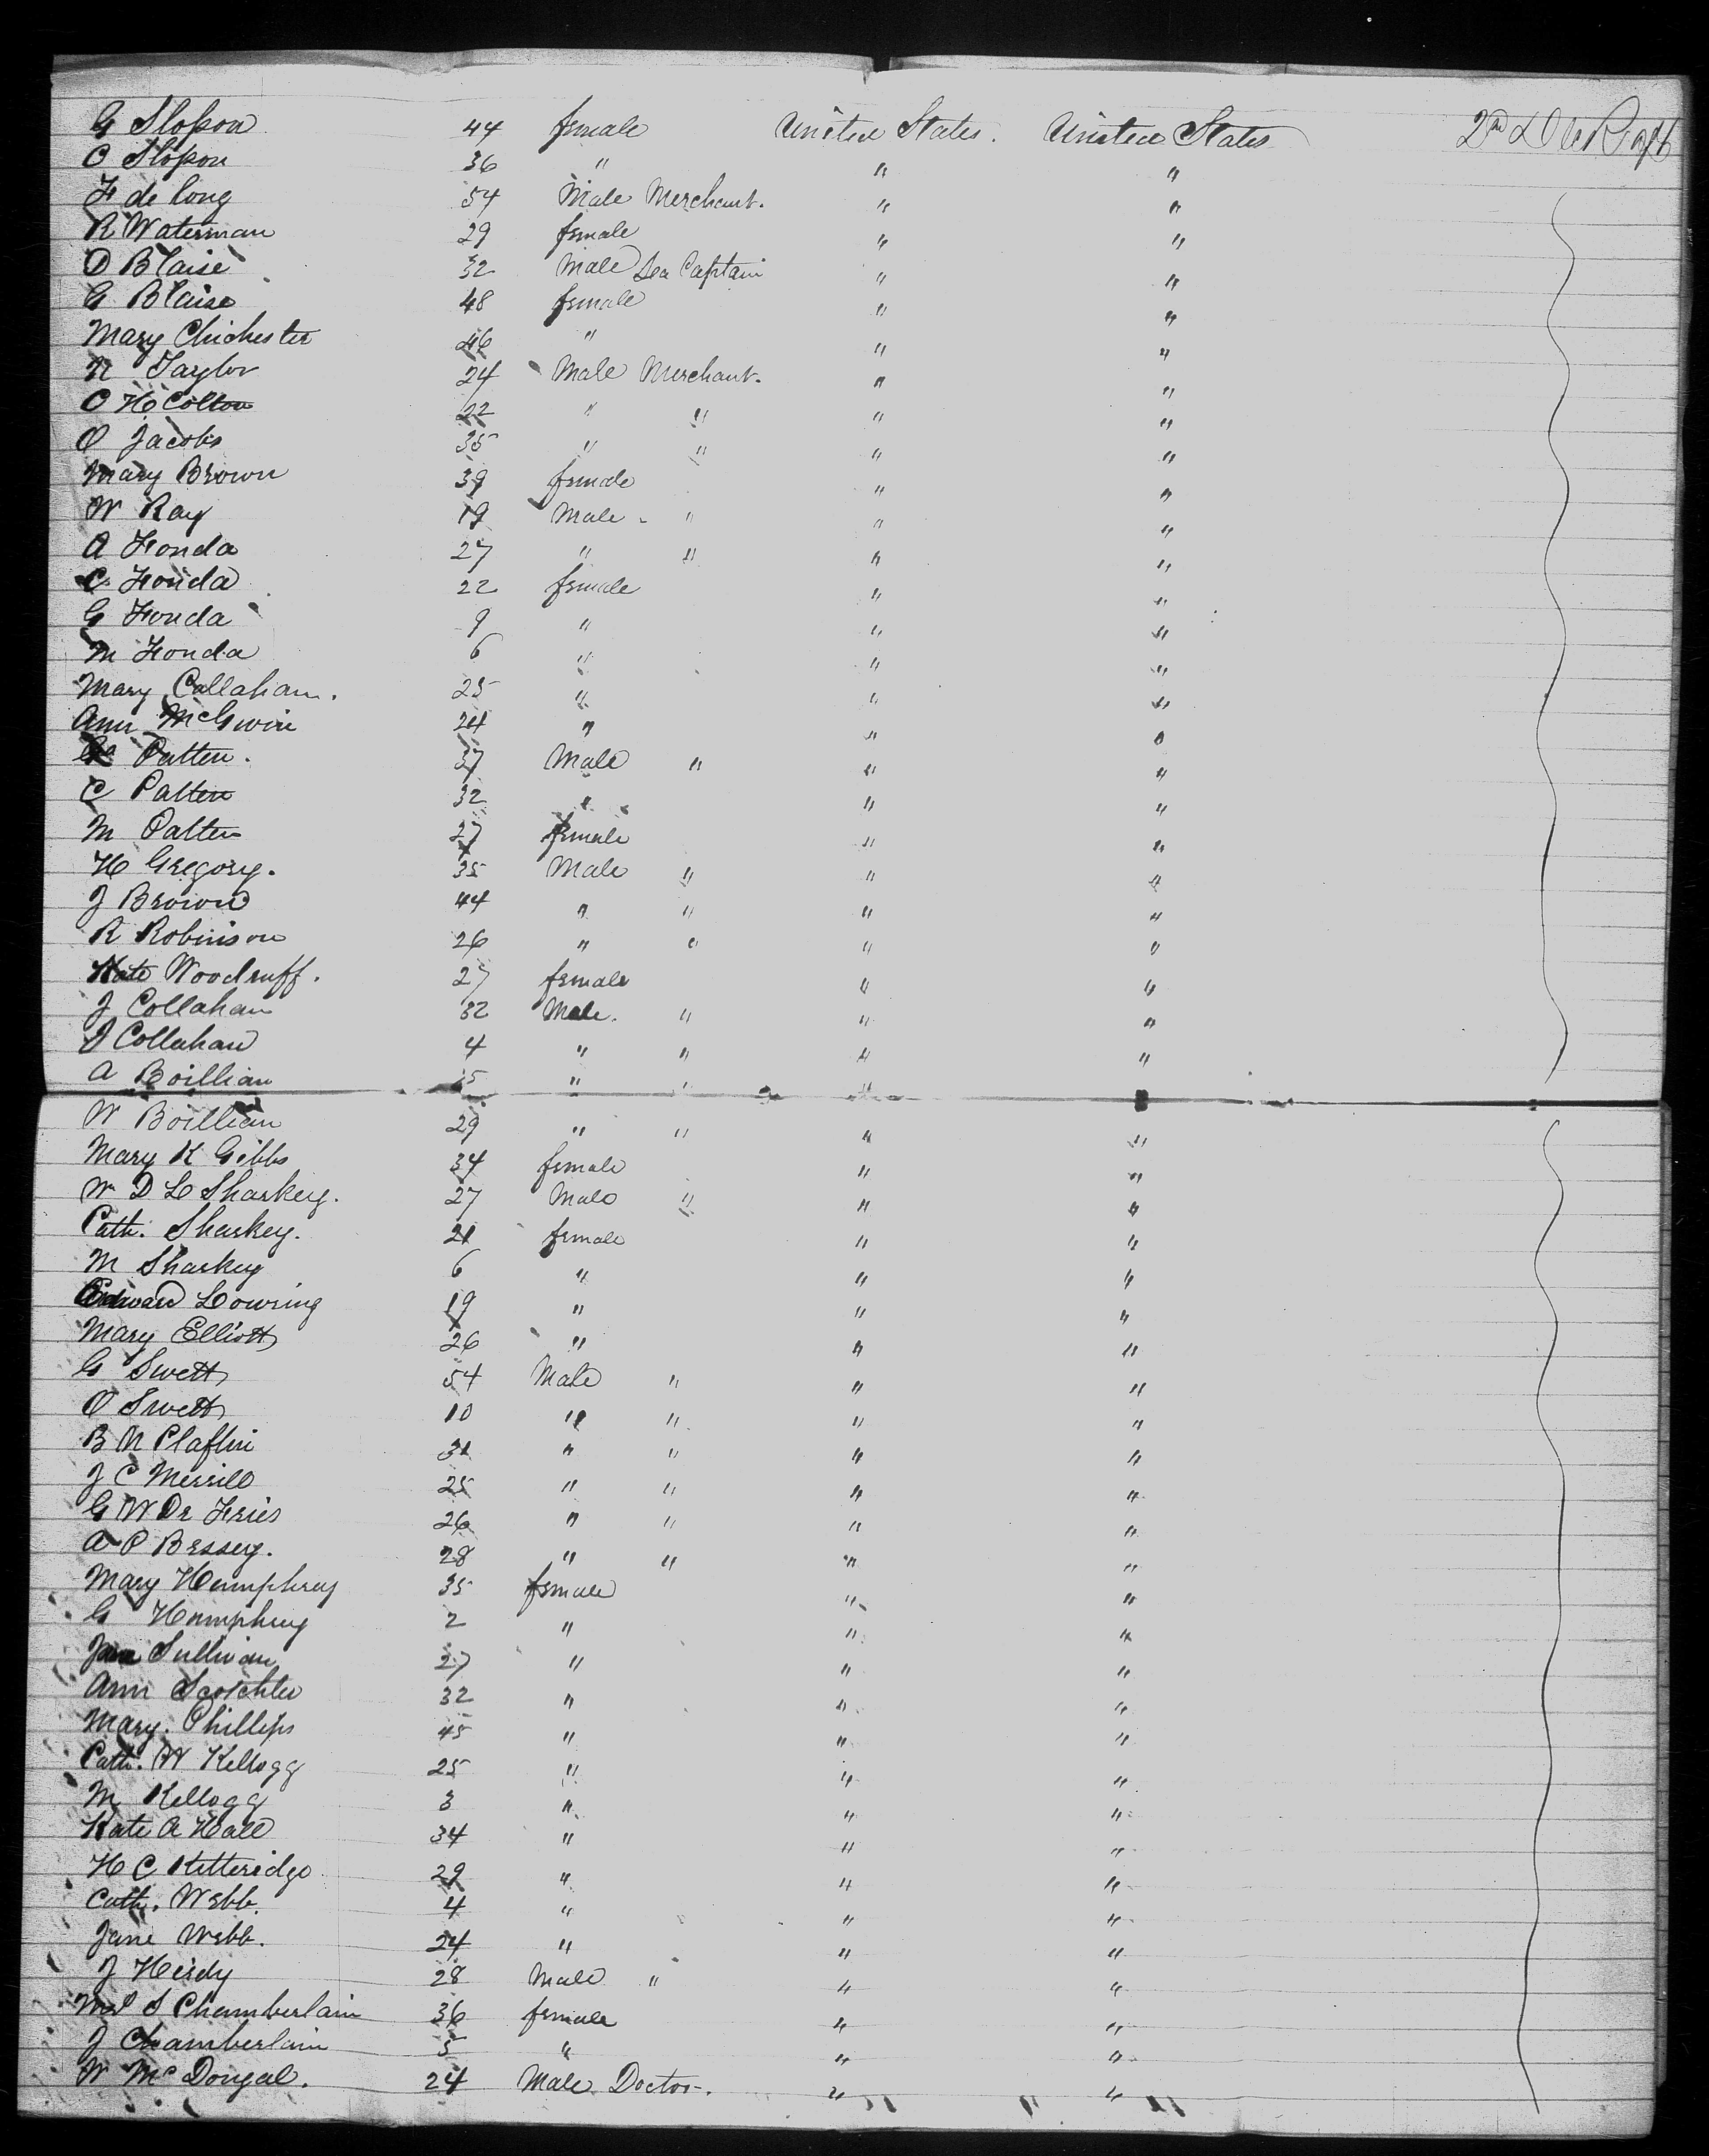 G Slosson 44 female United States. United States 2nd
C Slosson 36 " " "
F de Long 54 Male Merchant. " "
R Waterman 29 female " "
D Blaise 32 Male Sea Captain " "
G Blaise 48 female " "
Mary Chichester 46 " " "
N Taylor 24 Male Merchant. " "
C H Colton 22 " " " "
O Jacobs 35 " " " "
Mary Brown 39 female " "
W Ray 19 Male " " "
A Fonda 27 " " " "
C Fonda 22 female " "
G Fonda 9 " " "
M Fonda 6 " " "
Mary Callaham. 25 " " "
Ann McGwin 24 " " "
Patten. 37 Male " " "
C Patten 32 " " "
M Patten 27 female " "
H Gregory. 35 Male " " "
J Brown 44 " " " "
R Robinson 26 " " " "
Kate Woodruff. 27 female " "
J Collahan 32 Male. " " "
J Collahan 4 " " " "
A Boillian " " " "
W Boillian 29 " " " "
Mary K Gibbs 34 female " "
Wm D L Sharkey. 27 Male " " "
Cath. Sharkey. 21 female " "
M Sharkey 6 " " "
Lowring 19 " " "
Mary Elliott 26 " " "
G Swett 54 Male " " "
O Swett 10 " " " "
B N Claflin 31 " " " "
J C Merrill 25 " " " "
G W De Fries 26 " " " "
A P Bessey. 28 " " " "
Mary Humphrey 35 female " "
G Humphrey 2 " " "
Sullivan 27 " " "
Ann 32 " " "
Mary. Phillips 45 " " "
Cath. W Kellogg 25 " " "
M Kellogg 3 " " "
Kate A Hall 34 " " "
H C Kitteridge 29 " " "
Cath. Webb. 4 " " "
Jane Webb. 24 " " "
J Heidy 28 Male " " "
S Chamberlain 36 female " "
J Chamberlain 5 " " "
W McDougal. 24 Male Doctor. " "